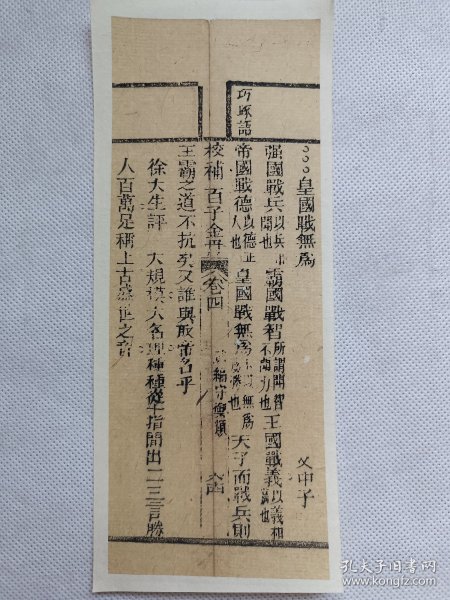 巧琢語
○○○皇國戰無爲
文中子
强國戰兵以兵 鬪也霸國戰智所謂鬪智不鬪力也王國戰義以義相 也
帝國戰德以德 人也皇國戰無爲 無爲 也天子而戰兵則
校補百子金丹 卷四
王霸之道不抗矣又誰與取帝名乎
徐大生評 大規模大名理種種從十指間出一二三言勝
人百萬足稱上古盛世之音
孔夫子旧书网
www.kongfz.com